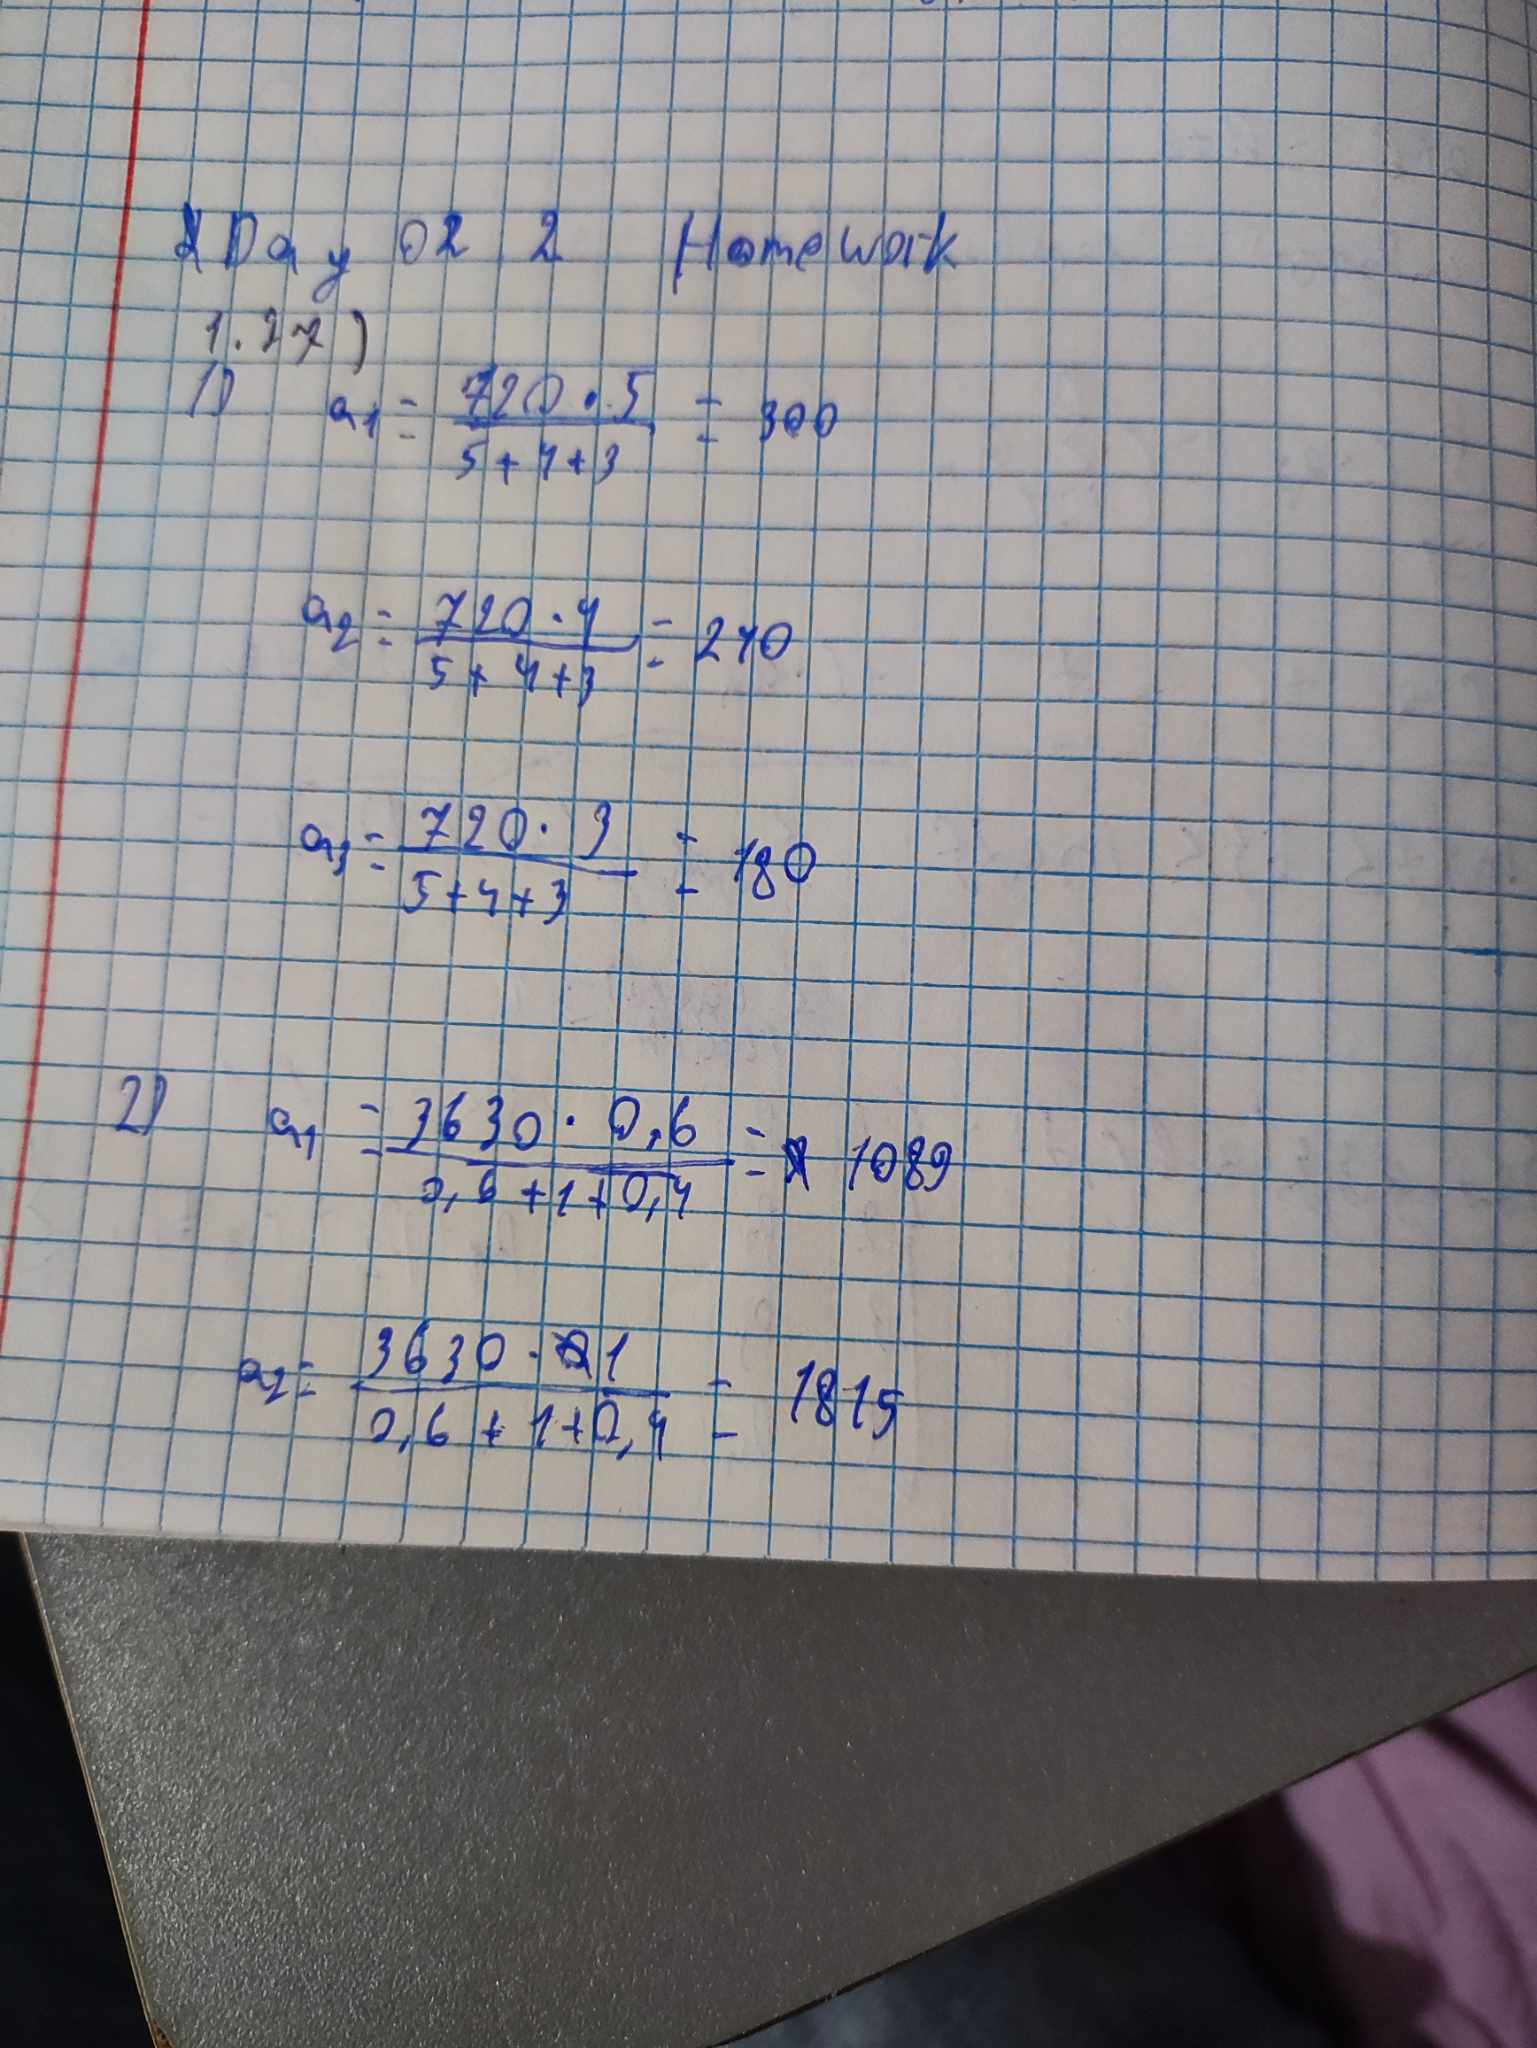 Day 02 2 Homework
1.27)
1) a1 = 720 · 5 / 5+4+3 = 300
a2 = 720 · 4 / 5+4+3 = 240
a3 = 720 · 3 / 5+4+3 = 180
2) a1 = 3630 · 0,6 / 0,6+1+0,4 = 1089
a2 = 3630 · 1 / 0,6+1+0,4 = 1815